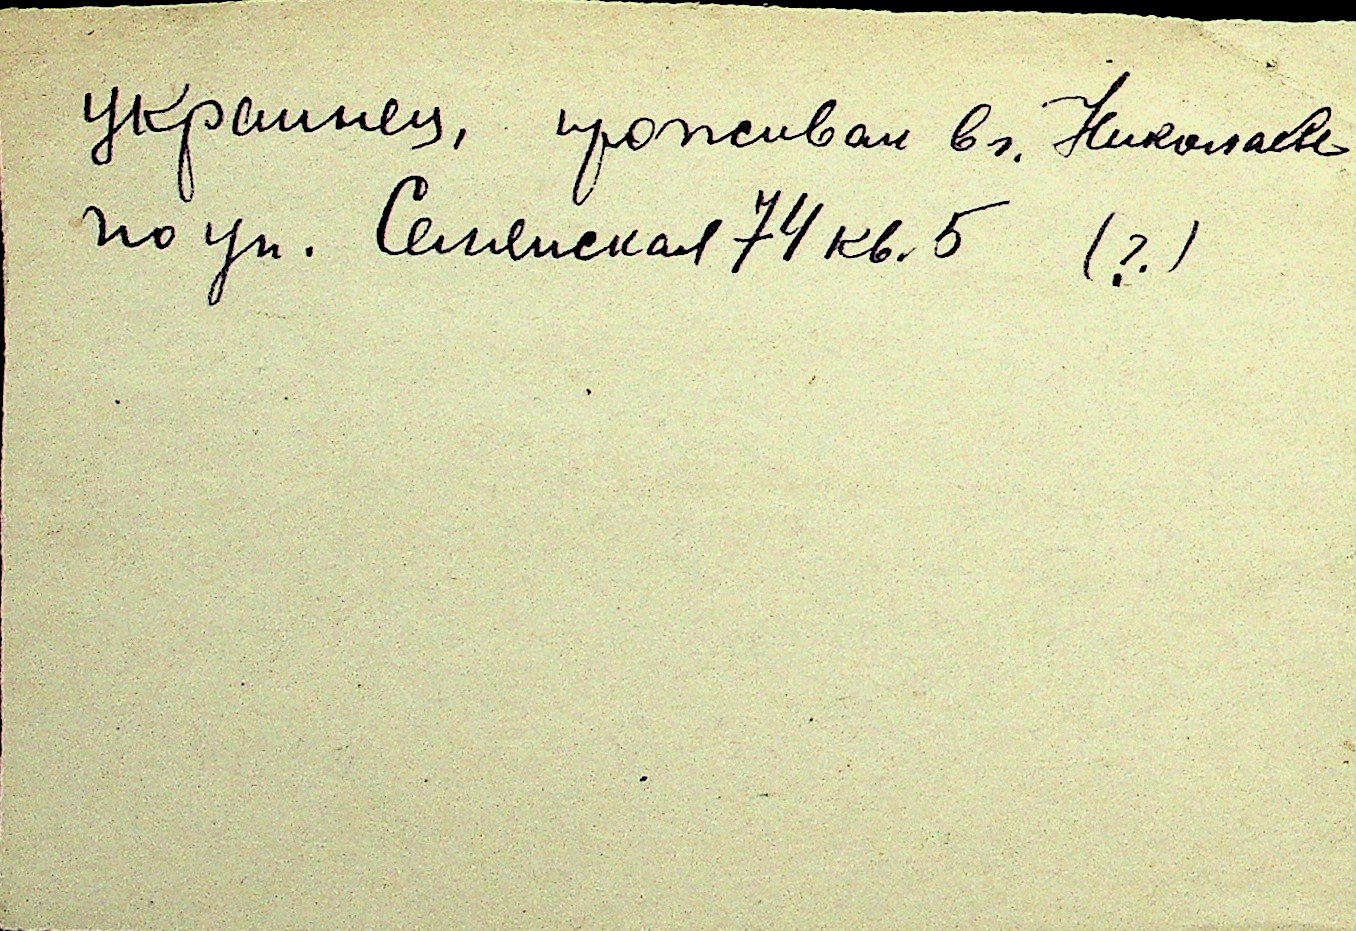 украинец, проживал в г. Николаеве
по ул. Селянская 74 кв. 5 (?)